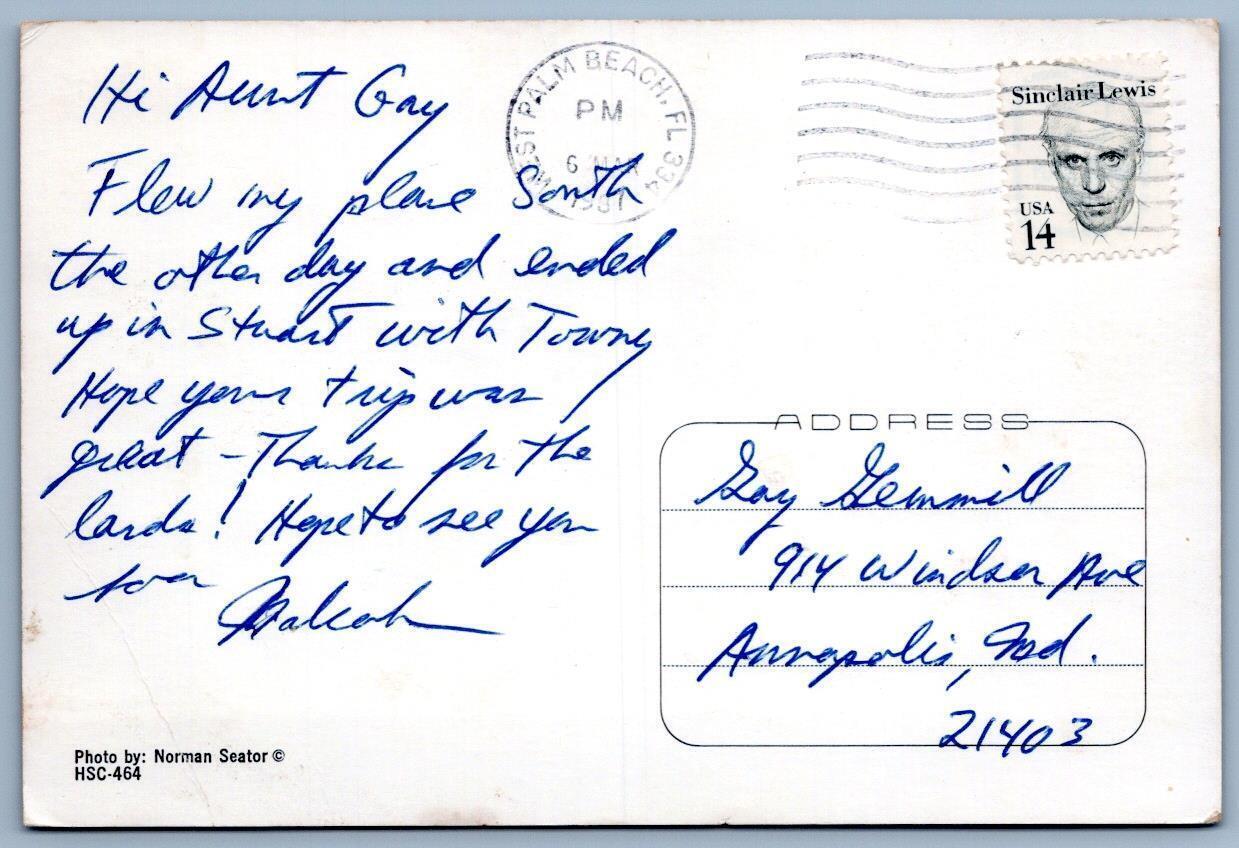 Hi Aunt Gay
Flew my plane South
the other day and ended
up in Stuart with Towny
Hope your trip was
great - Thanks for the
cards! Hope to see you
soon
Malcolm
WEST PALM BEACH, FL 334
PM
6 MAR
1987
Sinclair Lewis
USA
14
ADDRESS
Gay Gemmill
914 Windsor Ave
Annapolis, Md.
21403
Photo by: Norman Seator ©
HSC-464